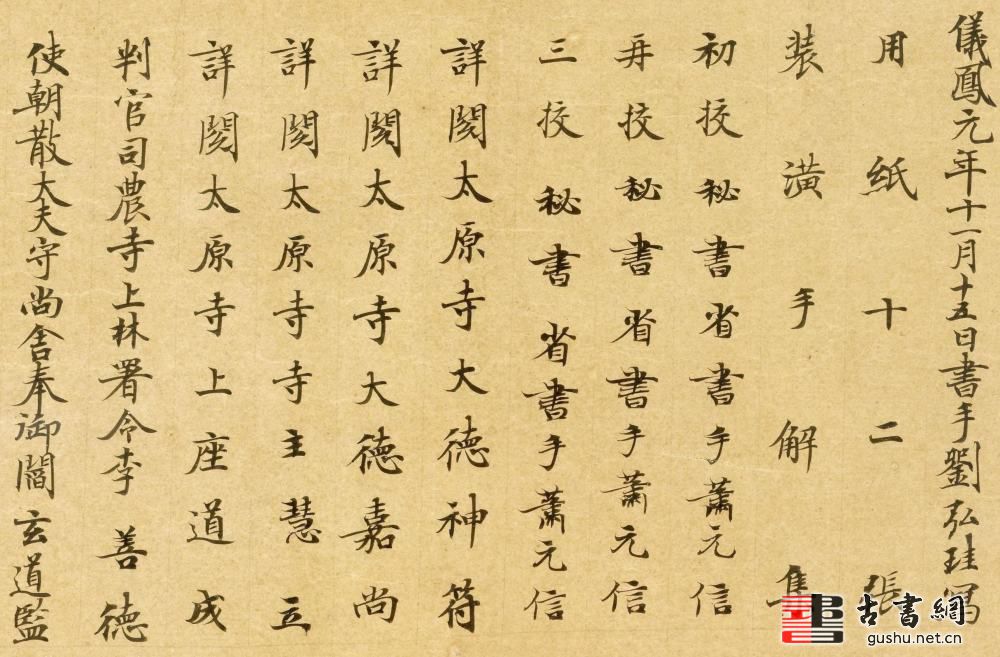 儀鳳元年十一月十五日書手劉弘珪寫
用紙十二張
装潢手解集
初挍秘書省書手蕭元信
再挍秘書省書手蕭元信
三挍秘書省書手蕭元信
詳閱太原寺大德神符
詳閱太原寺大德嘉尚
詳閱太原寺寺主慧立
詳閱太原寺上座道成
判官司農寺上林署令李善德
使朝散大夫守尚舍奉御閻玄道監
古書網
gushu.net.cn